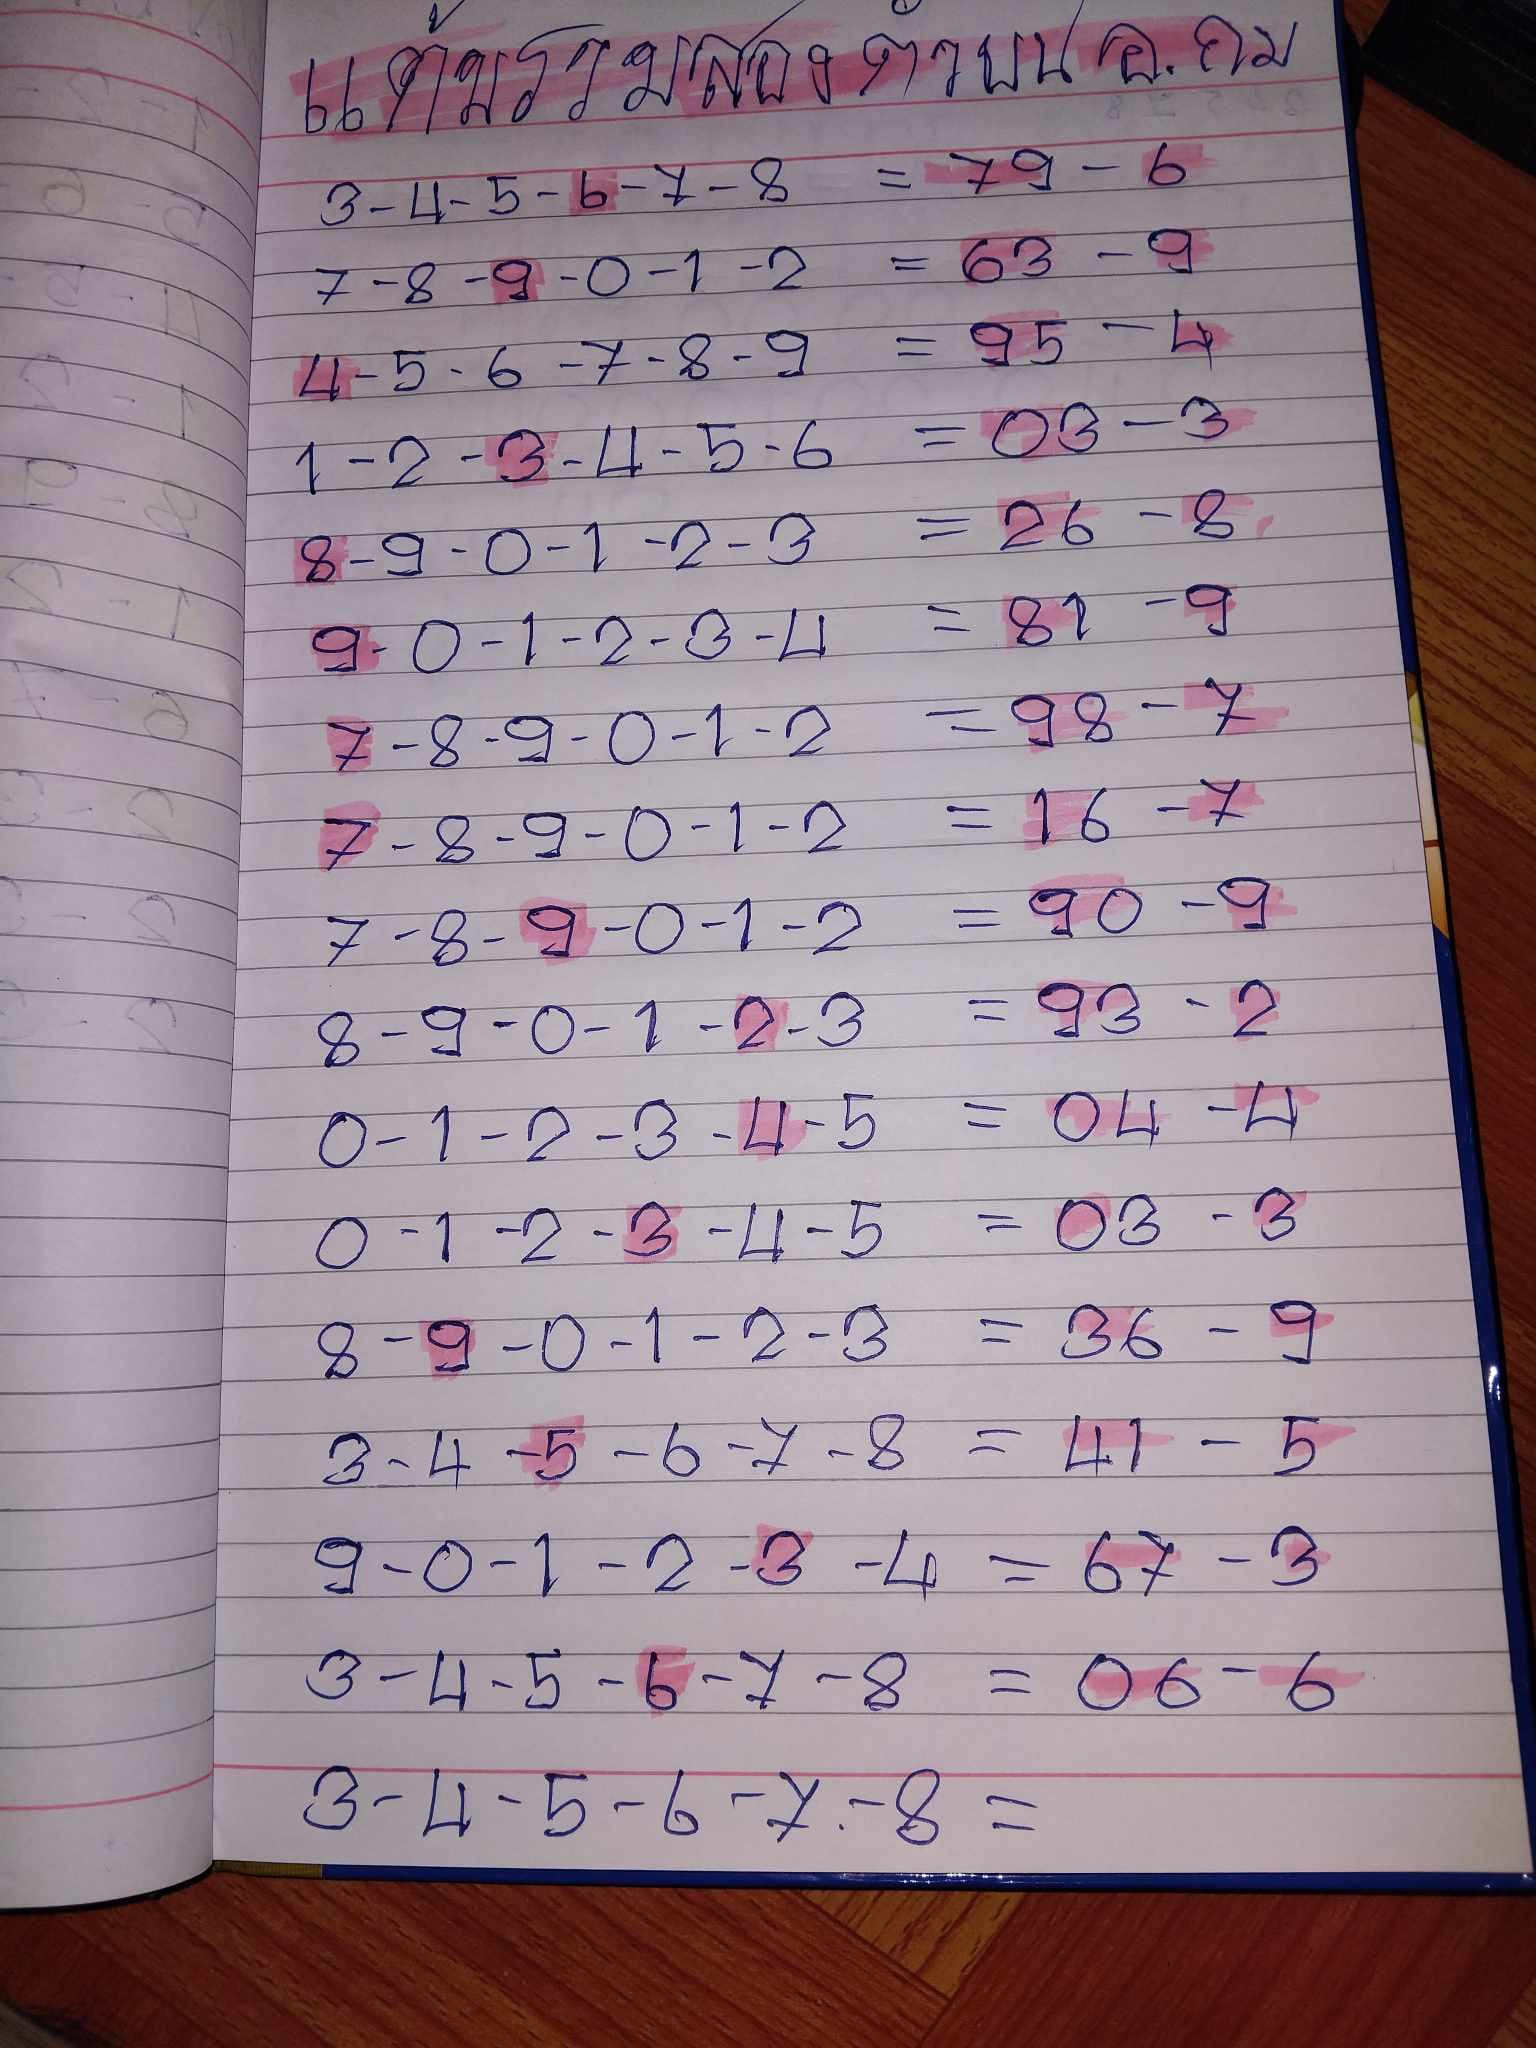 แต้มรวมสองตัวบน อ.ถม
3-4-5-6-7-8 = 79-6
7-8-9-0-1-2 = 63-9
4-5-6-7-8-9 = 95-4
1-2-3-4-5-6 = 03-3
8-9-0-1-2-3 = 26-8
9-0-1-2-3-4 = 81-9
7-8-9-0-1-2 = 98-7
7-8-9-0-1-2 = 16-7
7-8-9-0-1-2 = 90-9
8-9-0-1-2-3 = 93-2
0-1-2-3-4-5 = 04-4
0-1-2-3-4-5 = 03-3
8-9-0-1-2-3 = 36-9
3-4-5-6-7-8 = 41-5
9-0-1-2-3-4 = 67-3
3-4-5-6-7-8 = 06-6
3-4-5-6-7-8 =